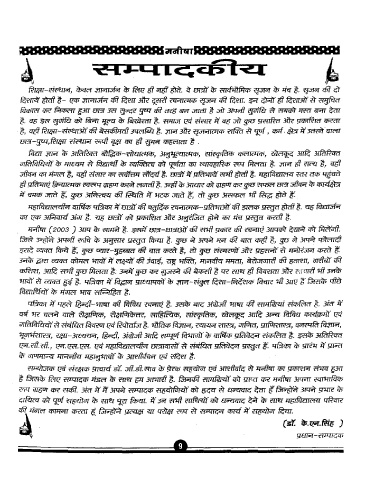 मनीषा
सम्पादकीय
शिक्षा-संस्थान, केवल ज्ञानार्जन के लिए ही नहीं होते. वे छात्रों के सार्वभौमिक सृजन के मंच है. सृजन की दो
दिशायें होती है- एक ज्ञानार्जन की दिशा और दूसरी रचनात्मक सृजन की दिशा. इन दोनों ही दिशाओं से समुचित
विकास कर निकला हुआ छात्र उस सुन्दर पुष्प की तरह बन जाता है जो अपनी सुगंधि से सबको मस्त बना देता
है. वह इस सुगंधि को बिना मूल्य के बिखेरता है. समाज एवं संसार में वह जो कुछ प्रसारित और प्रकाशित करता
है, वही शिक्षा-संस्थाओं की बेसकीमती उपलब्धि है. ज्ञान और सृजनात्मक संस्कृति से पूर्ण, कर्म क्षेत्र में उतरने वाला
छात्र-पुष्प, शिक्षा संस्थान रूपी वृक्ष का ही सुफल कहलाता है.
विद्या ज्ञान के अतिरिक्त बौद्धिक-शोधात्मक, अनुभूत्यात्मक, सांस्कृतिक कलात्मक, खेलकूद आदि अतिरिक्त
गतिविधियों के माध्यम से विद्यार्थी के व्यक्तित्व को पूर्णता का व्यावहारिक रूप मिलता है. ज्ञान ही सत्य है, वही
जीवन का मंगल है, वही संसार का सर्वोत्तम सौंदर्य है. छात्रों में प्रतिभायें सभी होती है. महाविद्यालय स्तर तक पहुंचते
ही प्रतिभाएं क्रियात्मक स्वरूप ग्रहण करने लगती है. उन्हीं के आधार को ग्रहण कर कुछ सफल छात्र जीवन के कार्यक्षेत्र
में चमक जाते हैं, कुछ अनिश्चय की स्थिति में भटक जाते हैं, तो कुछ असफल भी सिद्ध होते हैं.
महाविद्यालयीन वार्षिक पत्रिका में छात्रों की चतुर्दिक रचनात्मक-प्रतिभाओं की झलक प्रस्तुत होती है. यह विद्यार्जन
का एक अनिवार्य अंग है. यह छात्रों को प्रकाशित और अनुरंजित होने का मंच प्रस्तुत करती है.
मनीषा (2003) आप के सामने है. इसमें छात्र-छात्राओं की सभी प्रकार की रचनाएं आपको देखने को मिलेंगी.
जिसे उन्होंने अपनी रूचि के अनुसार प्रस्तुत किया है. कुछ ने अपने मन की बात कही है, कुछ ने अपने फौलादी
इरादे व्यक्त किये हैं, कुछ प्यार-मुहब्बत की बात करते है, तो कुछ समस्याओं और प्रहसनों से मनोरंजन करते है.
उनके द्वारा व्यक्त कोमल भावों में लक्ष्यों की उंचाई, राष्ट्र भक्ति, मानवीय ममता, बेरोजगारी की हताशा, वादियों की
कशिश, आदि सभी कुछ मिलता है. उनमें कुछ कर गुजरने की बेकरारी है पर साथ ही विवशता और लाचारी भी उनके
भावों से व्यक्त हुई है. पत्रिका में विद्वान प्राध्यापकों के ज्ञान-संयुक्त दिशा-निर्देशक विचार भी आए हैं जिसके पीछे
विद्यार्थियों के मंगल भाव सन्निहित है.
पत्रिका में पहले हिन्दी-भाषा की विविध रचनाएं है. उसके बाद अंग्रेजी भाषा की सामग्रियां संकलित है. अंत में
वर्ष भर चलने वाले शैक्षणिक, शैक्षणिकेत्तर, साहित्यिक, सांस्कृतिक, खेलकूद आदि अन्य विविध कार्यक्रमों एवं
गतिविधियों से संबंधित विवरण एवं रिपोर्ताज है. भौतिक विज्ञान, रसायन शास्त्र, गणित, प्राणिशास्त्र, वनस्पति विज्ञान,
भूगर्भशास्त्र, रक्षा-अध्ययन, हिन्दी, अंग्रेजी आदि सम्पूर्ण विभागों के वार्षिक प्रतिवेदन संकलित है. इसके अतिरिक्त
एन.सी.सी., एन.एस.एस. एवं महाविद्यालयीन क्रीड़ा से संबंधित प्रतिवेदन प्रस्तुत हैं. पत्रिका के प्रारंभ में प्रान्त
के गणमान्य माननीय महानुभावों के आशीर्वचन एवं संदेश है.
संयोजक एवं संरक्षक प्राचार्य डॉ. जी.डी. के प्रेरक सहयोग एवं आशीर्वाद से मनीषा का प्रकाशन संभव हुआ
है जिसके लिए सम्पादक मंडल के साथ हम आभारी है. जिनकी सामग्रियों को प्राप्त कर मनीषा अपना स्वाभाविक
रूप ग्रहण कर सकी. अंत में मैं अपने सम्पादक सहयोगियों को हृदय से धन्यवाद देता हूँ जिन्होंने अपने प्रभार के
दायित्व को पूर्ण सहयोग के साथ पूरा किया. मैं उन सभी साथियों को धन्यवाद देने के साथ महाविद्यालय परिवार
की मंगल कामना करता हूँ जिन्होंने प्रत्यक्ष या परोक्ष रूप से सम्पादन कार्य में सहयोग दिया.
(डॉ. के.एन.सिंह)
प्रधान-सम्पादक
9